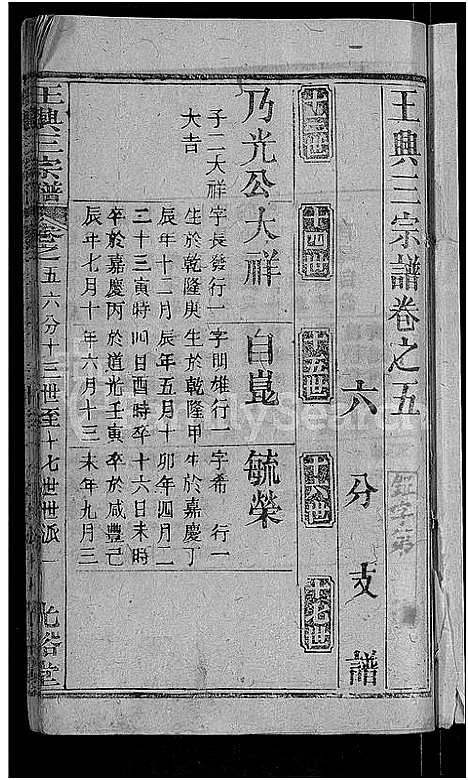 王興三宗譜卷之五
六分支譜
十三世
十四世
十五世
十六世
十七世
乃光公
子二大祥
大吉
大祥
字長發行一
生於乾隆庚
辰年十二月
二十三寅時
卒於嘉慶丙
辰年七月十
自崑
字明雄行一
生於乾隆甲
辰年五月十
四日酉時卒
於道光壬寅
年六月十三
毓榮
字希 行一
生於嘉慶丁
卯年四月二
十六日未時
卒於咸豐己
未年九月三
王興三宗譜 卷之五 六分十三世至十七世世派 一 光裕堂